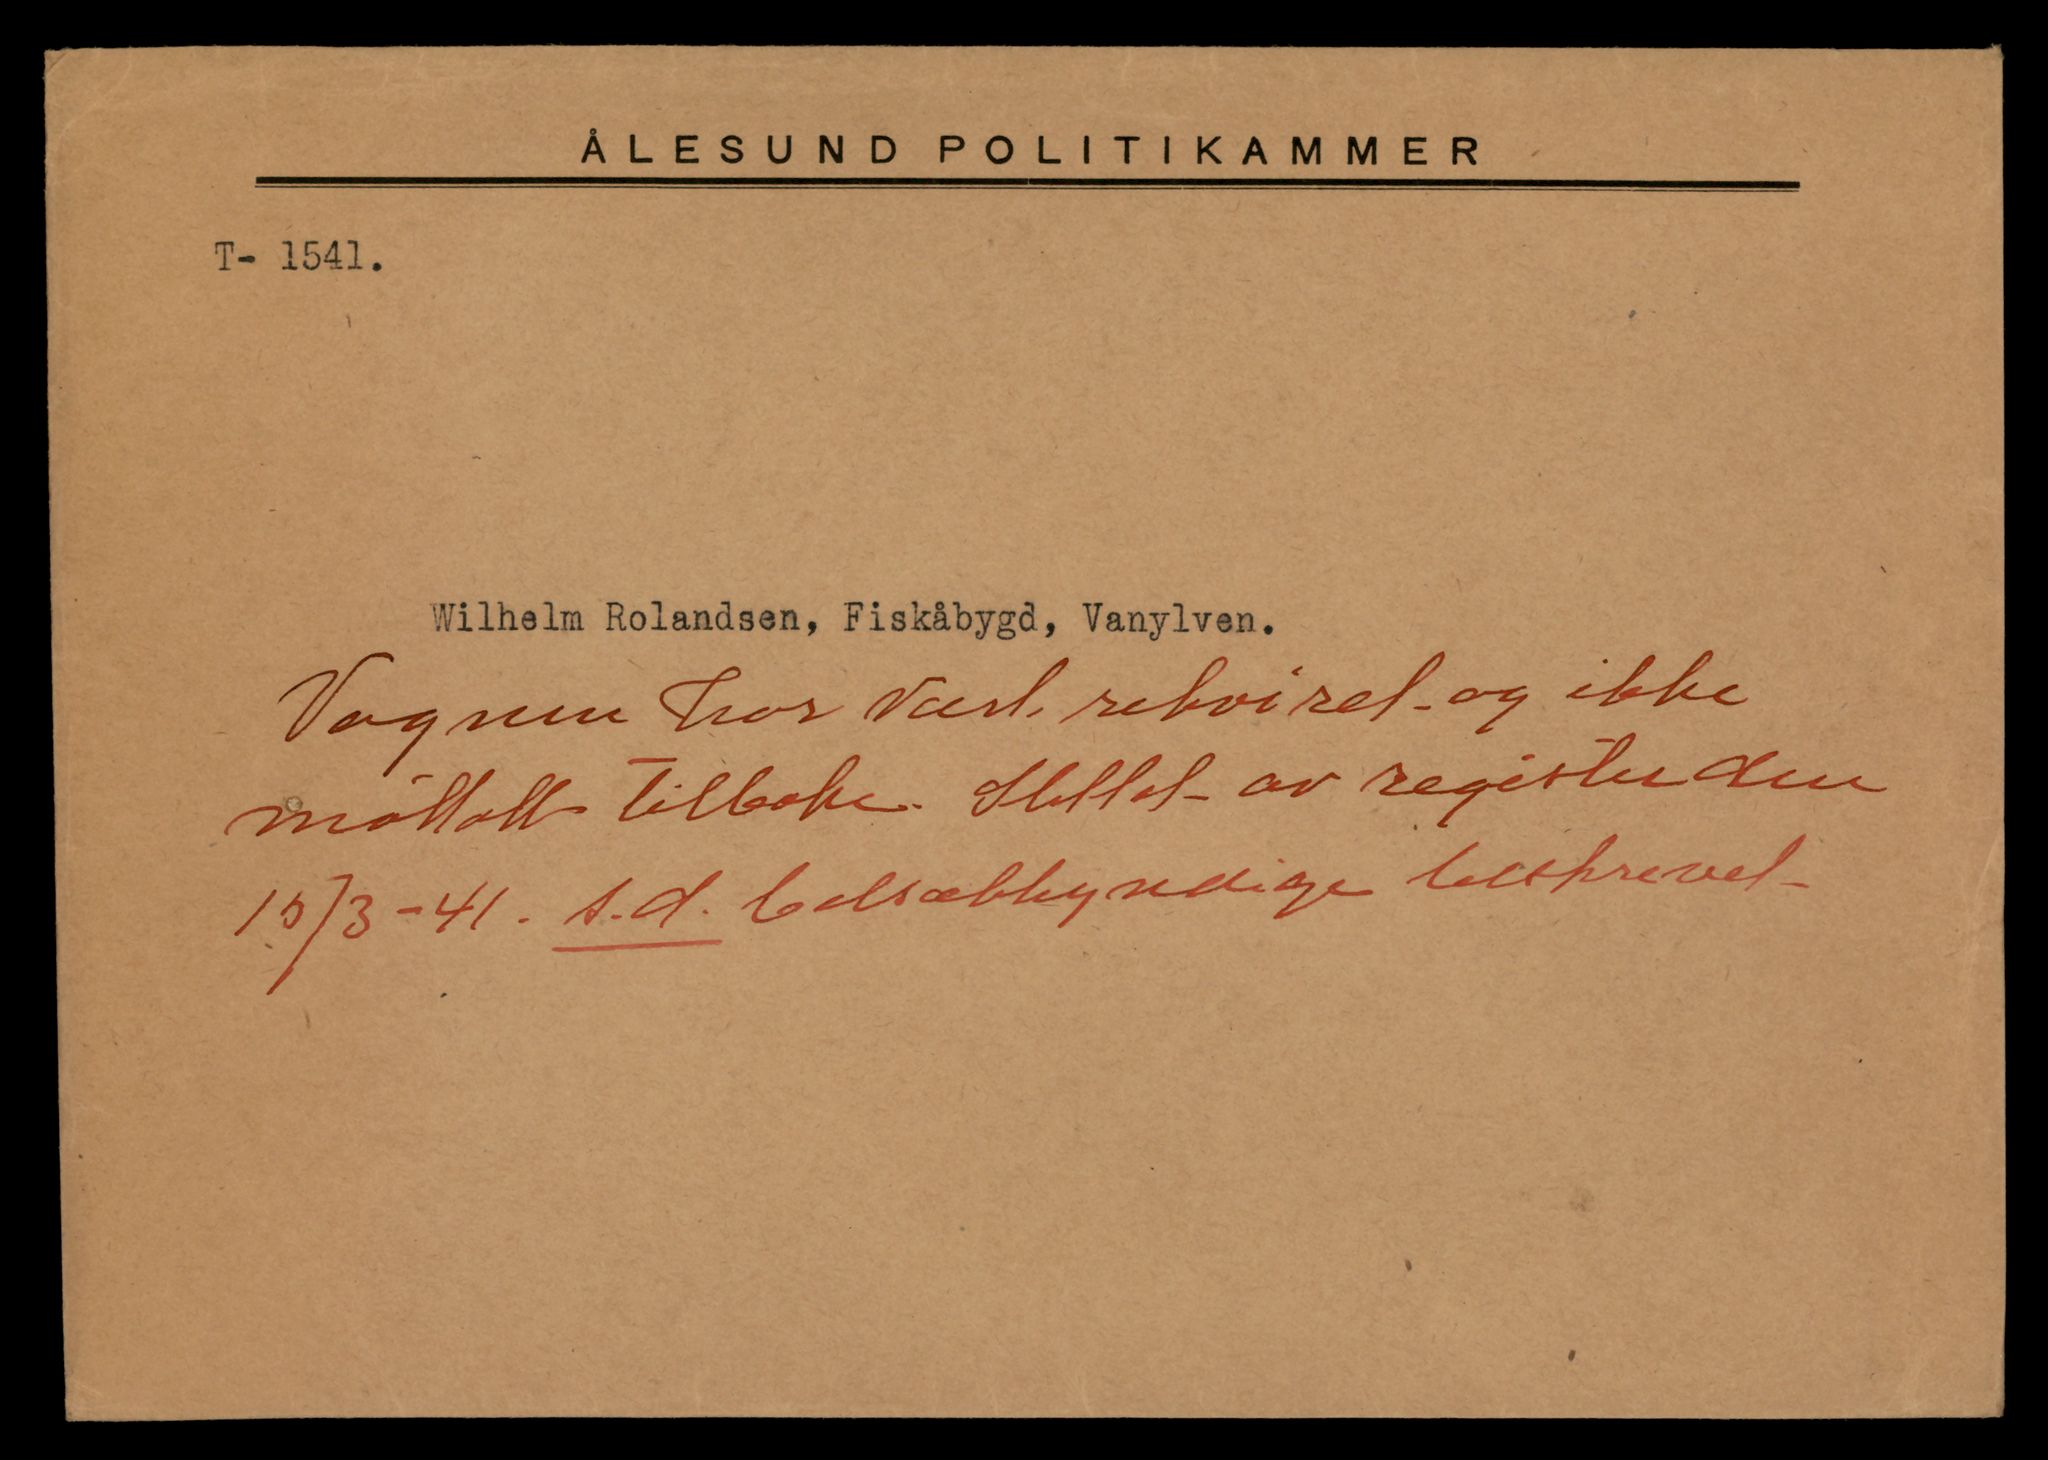 ÅLESUND POLITIKAMMER
T- 1541.
Wilhelm Rolandsen, Fiskåbygd, Vanylven.
Vognen har vært rekviret og ikke
mottatt tilbake. Slettet av registeret den
15/3-41. s.d. bilsakkyndige beskrevet